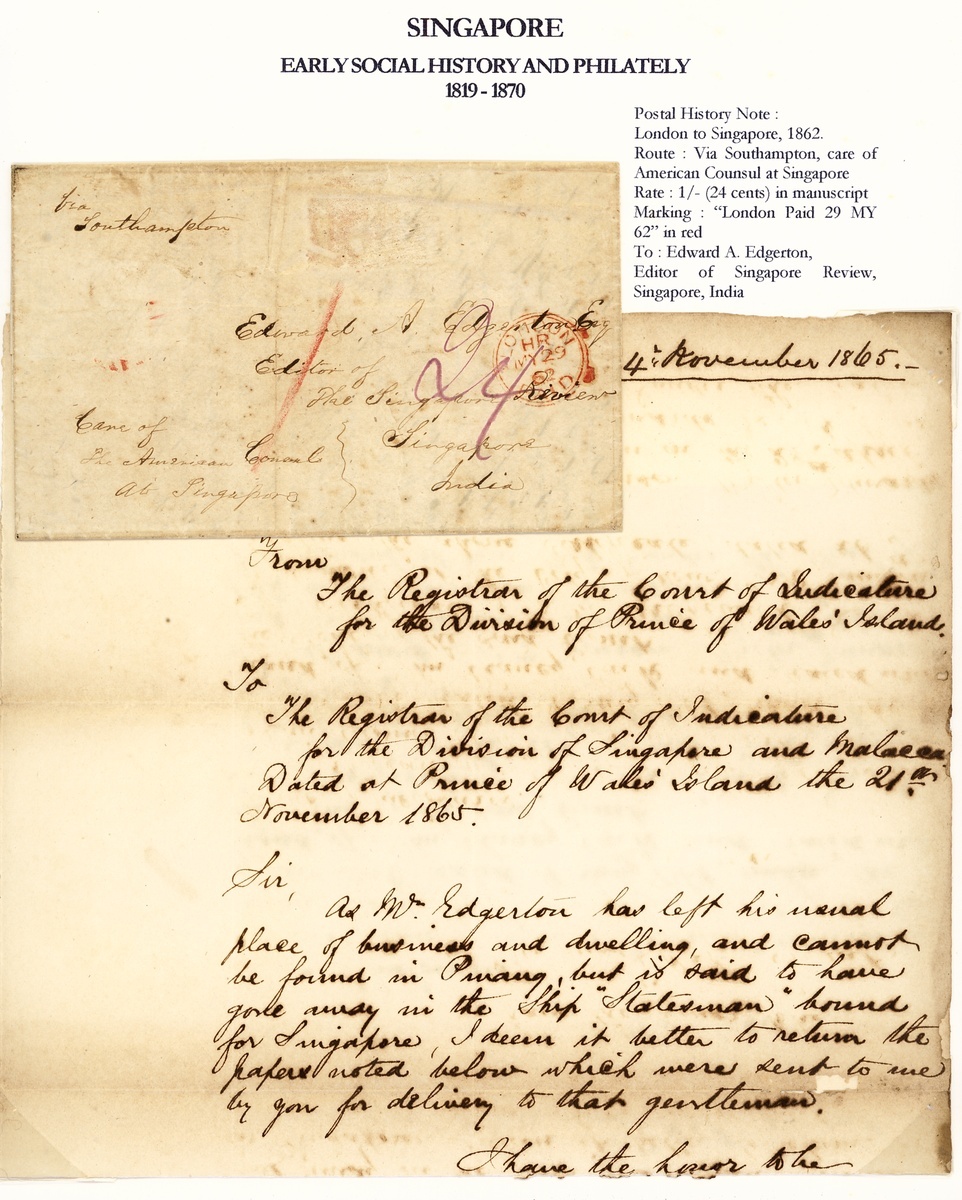 SINGAPORE
EARLY SOCIAL HISTORY AND PHILATELY
1819 - 1870
Postal History Note :
London to Singapore, 1862.
Route : Via Southampton, care of
American Counsul at Singapore
Rate : 1/- (24 cents) in manuscript
Marking : “London Paid 29 MY
62” in red
To : Edward A. Edgerton,
Editor of Singapore Review,
Singapore, India
Via
Southampton
Edward. A. Edgerton Esq
Editor of
The Singapore Review
Singapore
India
Care of
The American Consul
At Singapore
24
LONDON
HR
MY 29
62
PAID
4th November 1865.
From
The Registrar of the Court of Judicature
for the Division of Prince of Wales' Island.
To
The Registrar of the Court of Judicature
for the Division of Singapore and Malacca
Dated at Prince of Wales' Island the 21st
November 1865.
Sir,
As Mr. Edgerton has left his usual
place of business and dwelling, and cannot
be found in Pinang, but is said to have
gone away in the Ship "Statesman" bound
for Singapore, I deem it better to return the
papers noted below which were sent to me
by you for delivery to that gentleman.
I have the honor to be